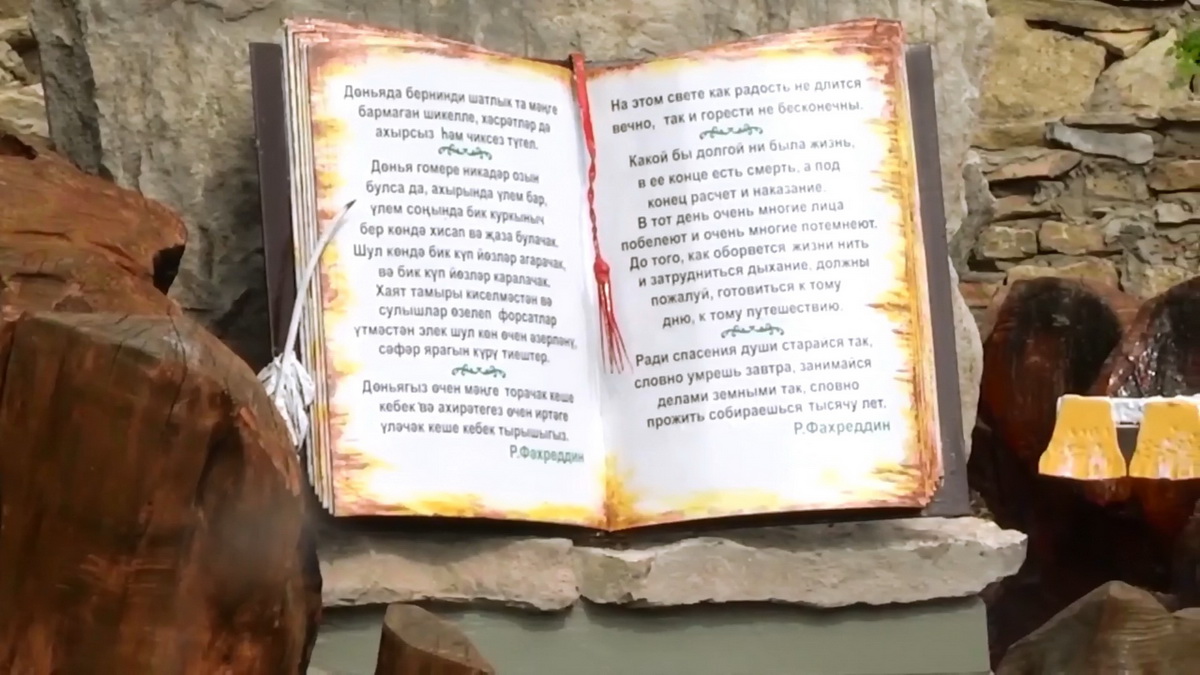 Дөньяда бернинди шатлык та мәңге
бармаган шикелле, хәсрәтләр дә
ахырсыз һәм чиксез түгел.
Дөнья гомере никадәр озын
булса да, ахырында үлем бар,
үлем соңында бик куркыныч
бер көндә хисап вә җаза булачак.
Шул көндә бик күп йөзләр агарачак,
вә бик күп йөзләр каралачак.
Хаят тамыры киселмәстән вә
сулышлар өзелеп форсатлар
үтмәстән элек шул көн өчен әзерләнү,
сәфәр ярагын күрү тиештер.
Дөньягыз өчен мәңге торачак кеше
кебек вә ахирәтегез өчен иртәге
үләчәк кеше кебек тырышыгыз.
Р.Фәхреддин
На этом свете как радость не длится
вечно, так и горести не бесконечны.
Какой бы долгой ни была жизнь,
в ее конце есть смерть, а под
конец расчет и наказание.
В тот день очень многие лица
побелеют и очень многие потемнеют.
До того, как оборвется жизни нить
и затрудниться дыхание, должны
пожалуй, готовиться к тому
дню, к тому путешествию.
Ради спасения души старайся так,
словно умрешь завтра, занимайся
делами земными так, словно
прожить собираешься тысячу лет.
Р.Фахреддин